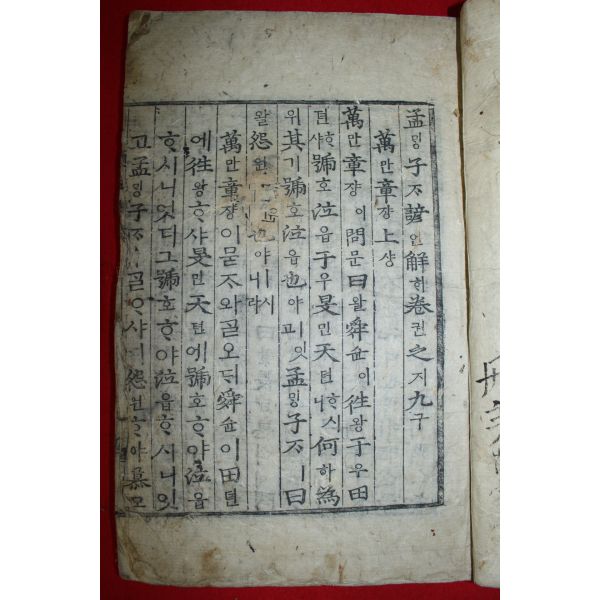 孟ᄆᆡᆼ子ᄌᆞ諺언解ᄒᆡ卷권之지九구
萬만章쟝上샹
萬만章쟝이問문曰왈舜슌이往왕于우田
뎐ᄒᆞ샤號호泣읍于우旻민天텬ᄒᆞ시니何하爲
위其기號호泣읍也야ㅣ잇고孟ᄆᆡᆼ子ᄌᆞㅣ曰
왈怨원모也야ㅣ시니라
萬만章쟝이묻ᄌᆞ와ᄀᆞᆯ오ᄃᆡ舜슌이田뎐
에往왕ᄒᆞ샤旻민天텬에號호ᄒᆞ야泣읍
ᄒᆞ시니엇디그號호ᄒᆞ야泣읍ᄒᆞ시니잇
고孟ᄆᆡᆼ子ᄌᆞㅣᄀᆞᆯᄋᆞ샤ᄃᆡ怨원ᄒᆞ야慕모